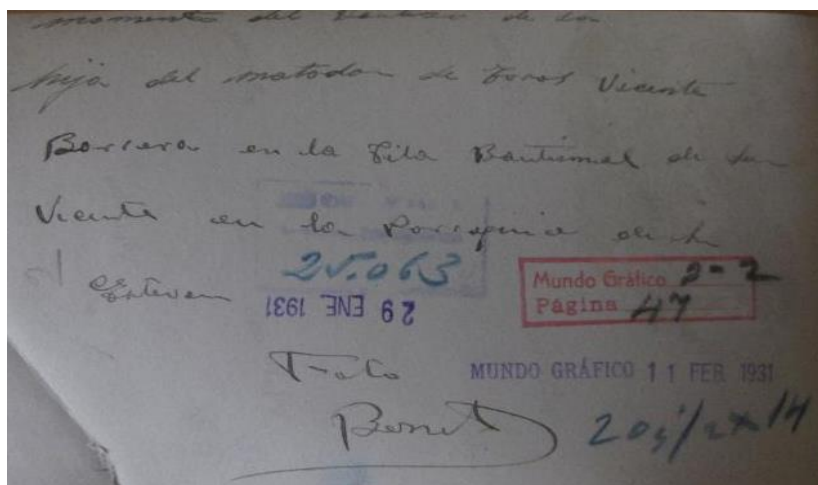 momento del Bautizo de la
hija del matador de toros Vicente
Barrera en la Pila Bautismal de San
Vicente en la Parroquia de S.
Esteven
25.063
29 ENE 1931
Mundo Gráfico 2-2
Página 47
Foto
MUNDO GRÁFICO 11 FEB 1931
20 1/2 x 14